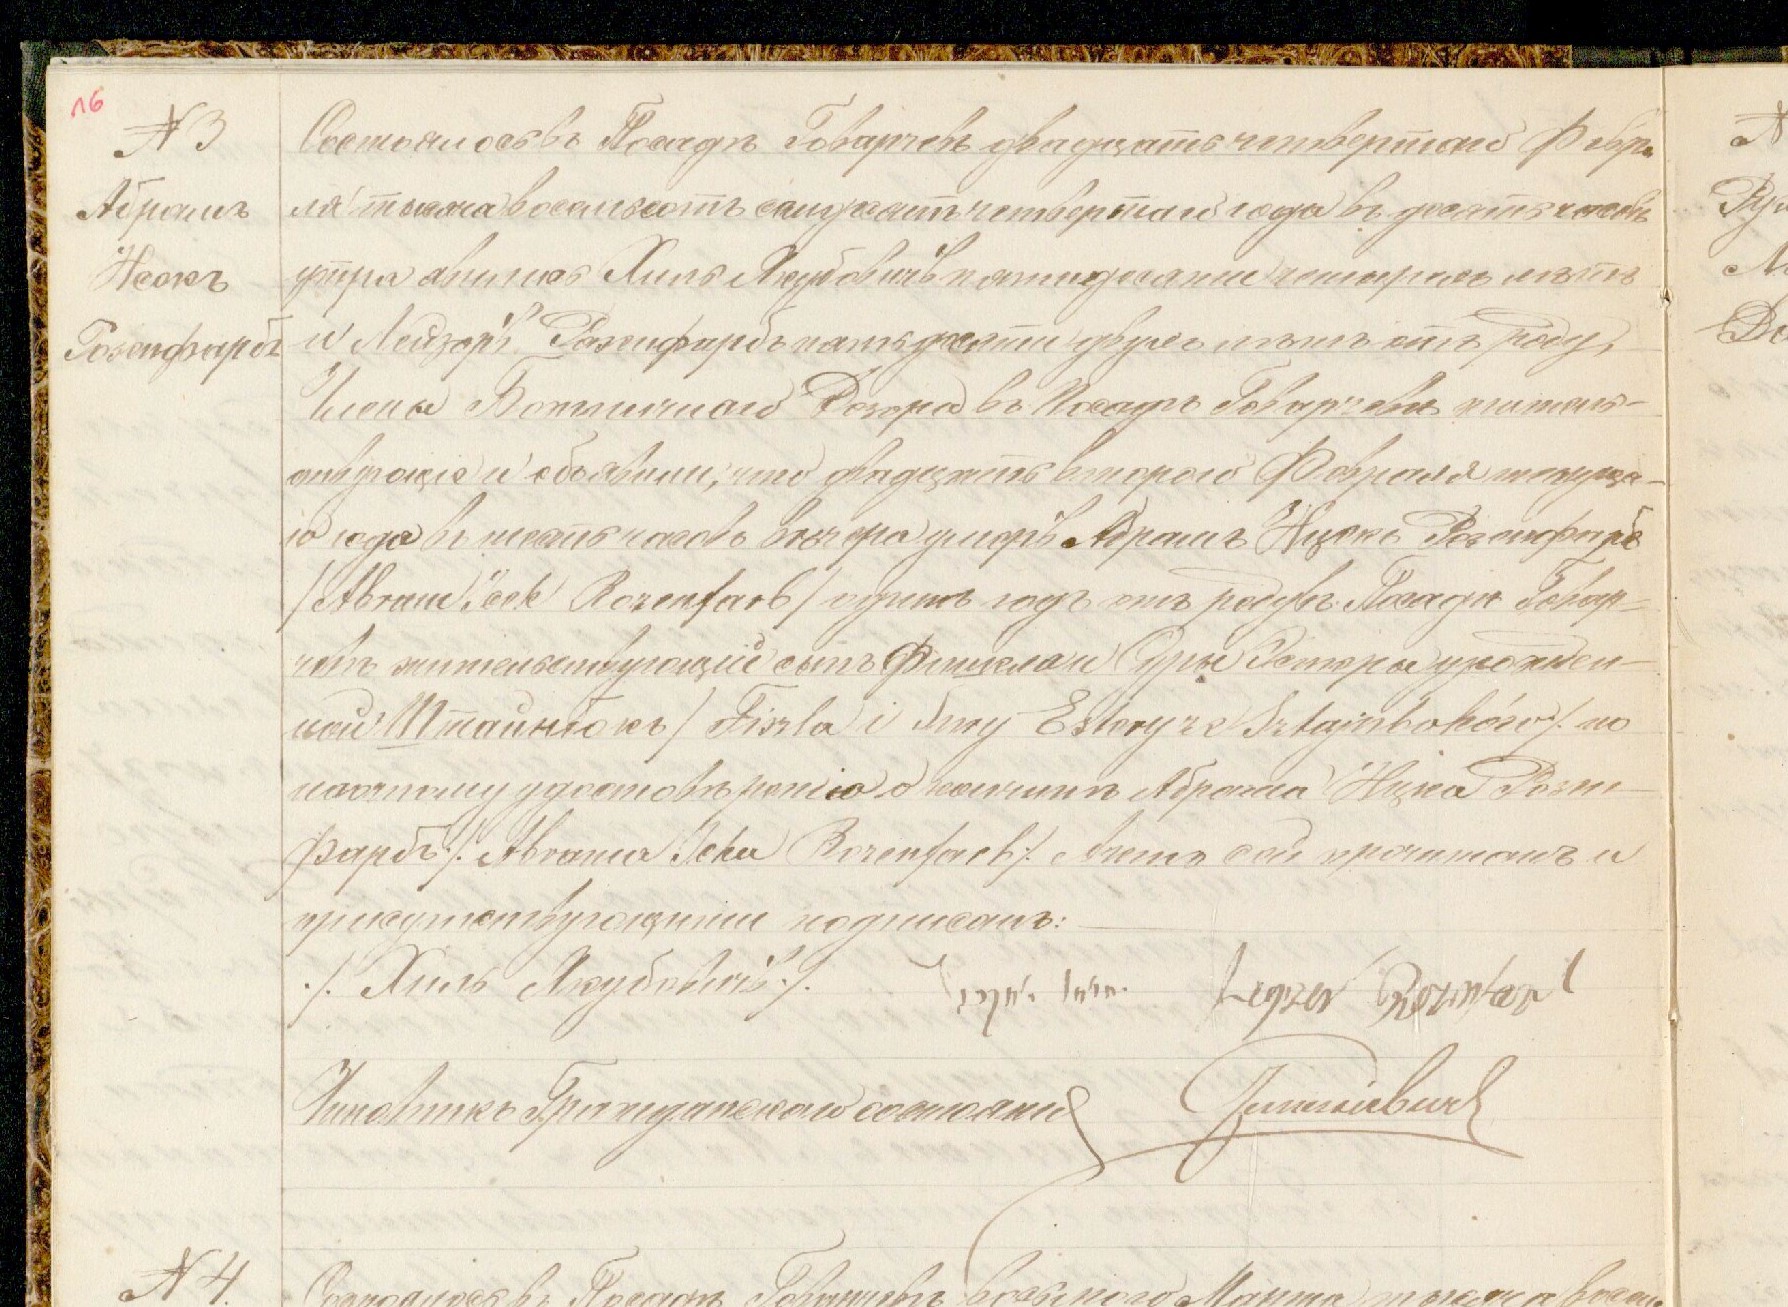 16
№ 3
Абрамъ
Ицекъ
Розенфарбъ
Состоялось въ Посадѣ Говарчевѣ двадцать четвертаго Февра
ля тысяча восемьсотъ семдесятъ четвертаго года въ десять часовъ
утра явились Хиль Якубовичъ пятидесяти четырехъ лѣтъ
и Лейзоръ Розенфарбъ пятьдесяти двухъ лѣтъ отъ роду,
Члены Божничнаго Дозора въ Посадѣ Говарчевѣ житель-
ствующіе и объявили, что двадцать втораго Февраля текуща-
го года въ шесть часовъ вечера умеръ Абрамъ Ицекъ Розенфарбъ
/Abram Icek Rozenfarb/ одинъ годъ отъ роду въ Посадѣ Говар-
чевѣ жительствующій сынъ Фишеля и Суры Эстеры урожден-
ной Штайнбокъ / Fiszla i Sury Estery ze Sztajnboków/. по
наочному удостовѣренію о кончинѣ Абрама Ицка Розен-
фарбъ /. Abrama Icka Rozenfarb /. Актъ сей прочитанъ и
присутствующими подписанъ:
./. Хиль Якубовичъ ./. Leyzer Rozenfarb
Чиновникъ Гражданскаго состоянія
№ 4.
Состоялось въ Посадѣ Говарчевѣ восьмого Марта тысяча восем